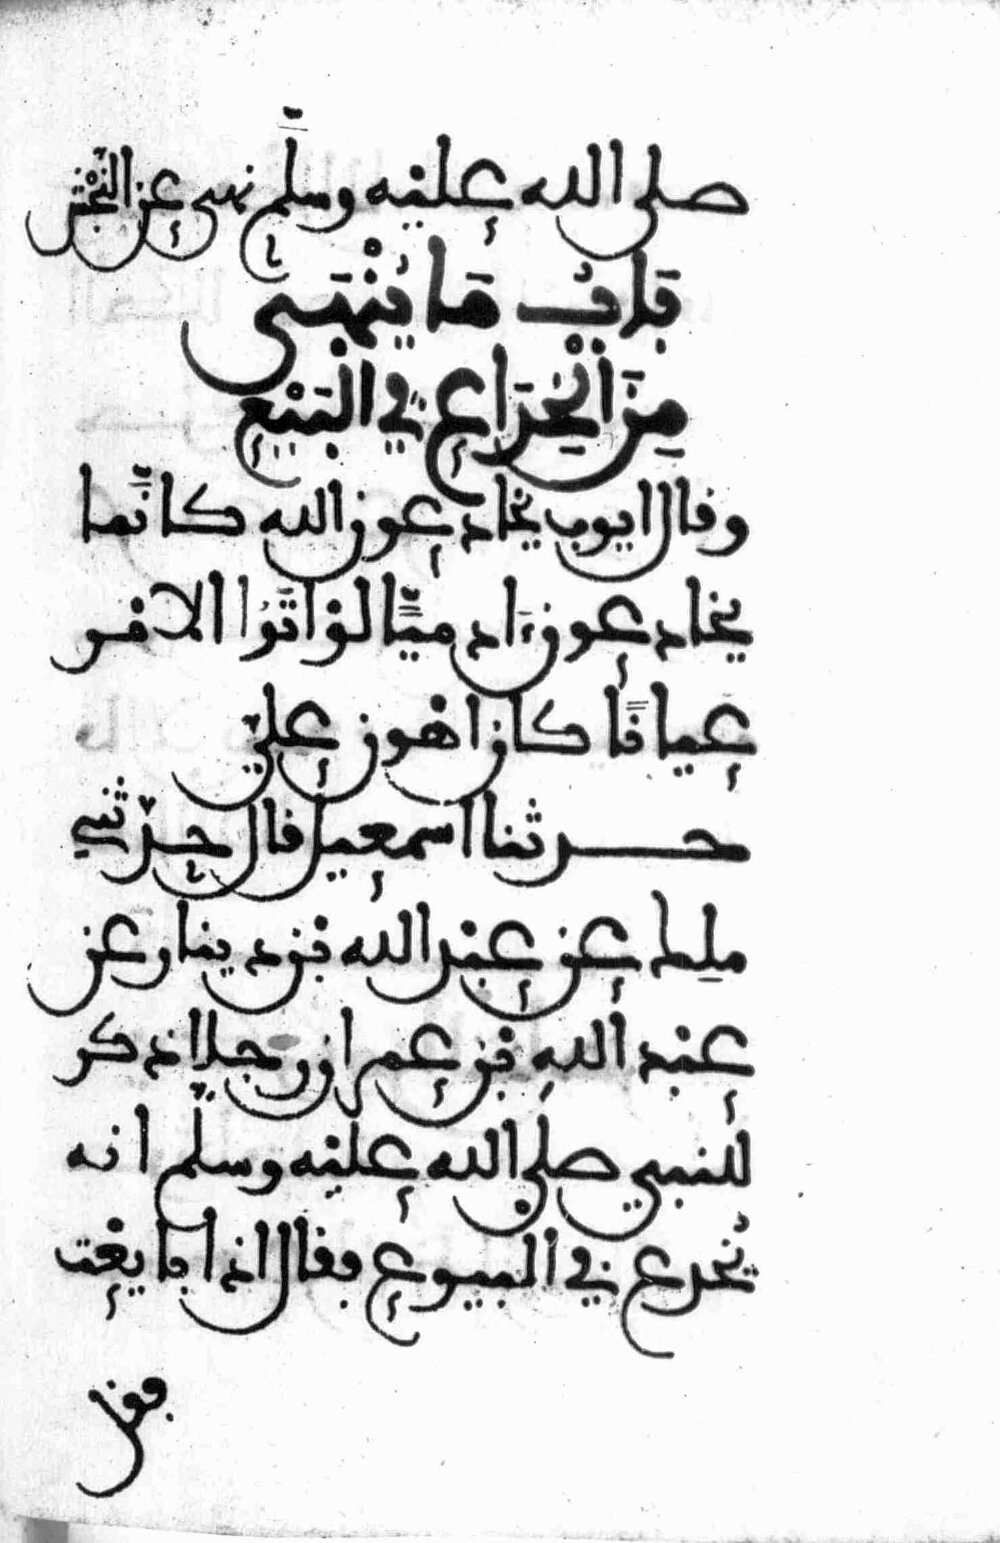 صلى الله عليه وسلم نهى عن النجش
باب ما ينهى
من الخداع في البيع
وقال ايوب يخادعون الله كانما
يخادعون ءادميا لو اتوا الامر
عيانا كان اهون علي
حدثنا اسمعيل قال حدثني
ملك عن عبد الله بن دينار عن
عبد الله بن عمر ان رجلا ذكر
للنبي صلى الله عليه وسلم انه
يخدع في البيوع فقال اذا بايعت
فقل